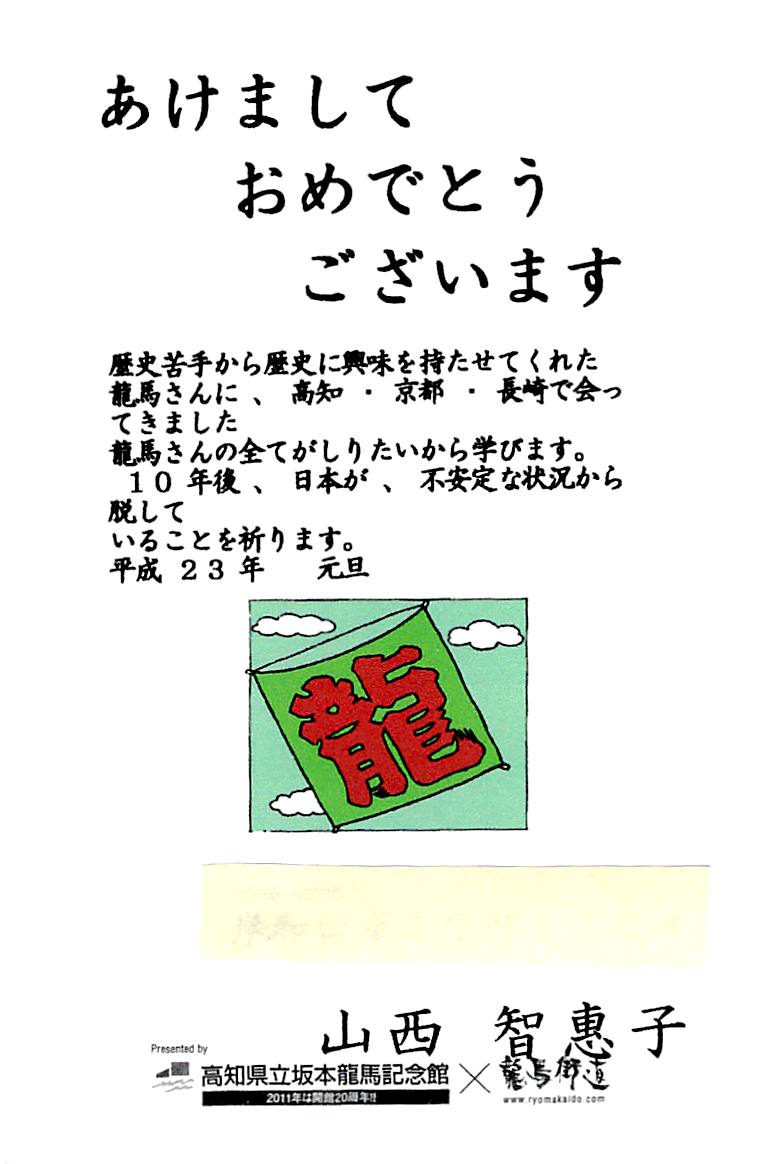 あけまして
おめでとう
ございます
歴史苦手から歴史に興味を持たせてくれた
龍馬さんに、高知・京都・長崎で会っ
てきました
龍馬さんの全てがしりたいから学びます。
１０年後、日本が、不安定な状況から
脱して
いることを祈ります。
平成２３年　元旦
龍
山西 智恵子
Presented by
高知県立坂本龍馬記念館×龍馬街道
2011年は開館20周年!!
www.ryomakaido.com